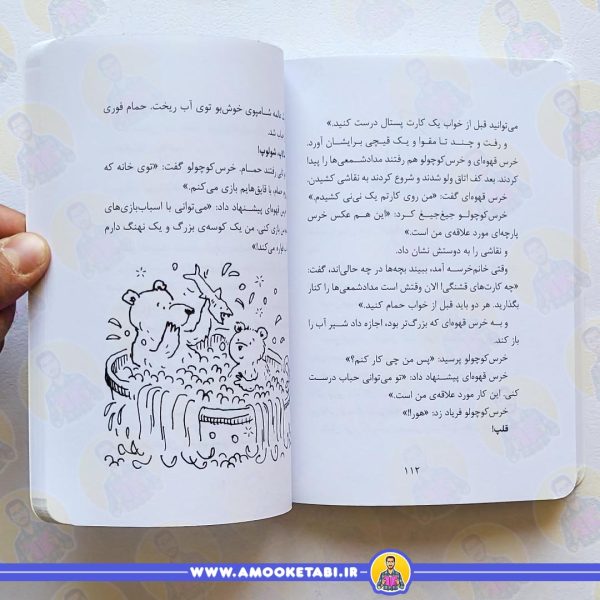 می‌توانید قبل از خواب یک کارت پستال درست کنید.»
و رفت و چند تا مقوا و یک قیچی برایشان آورد.
خرس قهوه‌ای و خرس‌کوچولو هم رفتند مدادشمعی‌ها را پیدا
کردند. بعد کف اتاق ولو شدند و شروع کردند به نقاشی کشیدن.
خرس قهوه‌ای گفت: «من روی کارتم یک نی‌نی کشیدم.»
خرس‌کوچولو جیغ‌جیغ کرد: «این هم عکس خرس
پارچه‌ای مورد علاقه‌ی من است.»
و نقاشی را به دوستش نشان داد.
وقتی خانم‌خرسه آمد، ببیند بچه‌ها در چه حالی‌اند، گفت:
«چه کارت‌های قشنگی! الان وقتش است مدادشمعی‌ها را کنار
بگذارید. هر دو باید قبل از خواب حمام کنید.»
و به خرس قهوه‌ای که بزرگ‌تر بود، اجازه داد شیر آب را
باز کند.
خرس‌کوچولو پرسید: «پس من چی کار کنم؟»
خرس قهوه‌ای پیشنهاد داد: «تو می‌توانی حباب درست
کنی. این کار مورد علاقه‌ی من است.»
خرس‌کوچولو فریاد زد: «هورا!»
قلپ!
۱۱۲
شامپوی خوش‌بو توی آب ریخت. حمام فوری
شد.
شولوپ!
رفتند حمام. خرس‌کوچولو گفت: «توی خانه که
حمام، با قایق‌هایم بازی می‌کنم.»
قهوه‌ای پیشنهاد داد: «می‌توانی با اسباب‌بازی‌های
بازی کنی. من یک کوسه‌ی بزرگ و یک نهنگ دارم
می‌کند!»
WWW.AMOOKETABI.IR